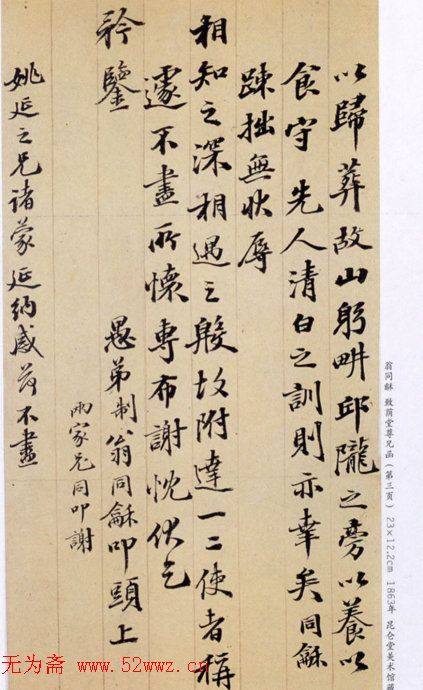 以歸葬故山躬畊邱隴之旁以養以
食守先人清白之訓則亦幸矣同龢
踈拙無狀辱
相知之深相遇之殷故附達一二使者稱
遽不盡所懷專布謝忱伏乞
矜鑒
愚弟制翁同龢叩頭上
兩家兄同叩謝
姚延之兄諸蒙延納感荷不盡
翁同龢 致荫堂尊兄函（第三页） 23×12.2cm 1863年 昆仑堂美术馆藏
无为斋 www.52wwz.cn